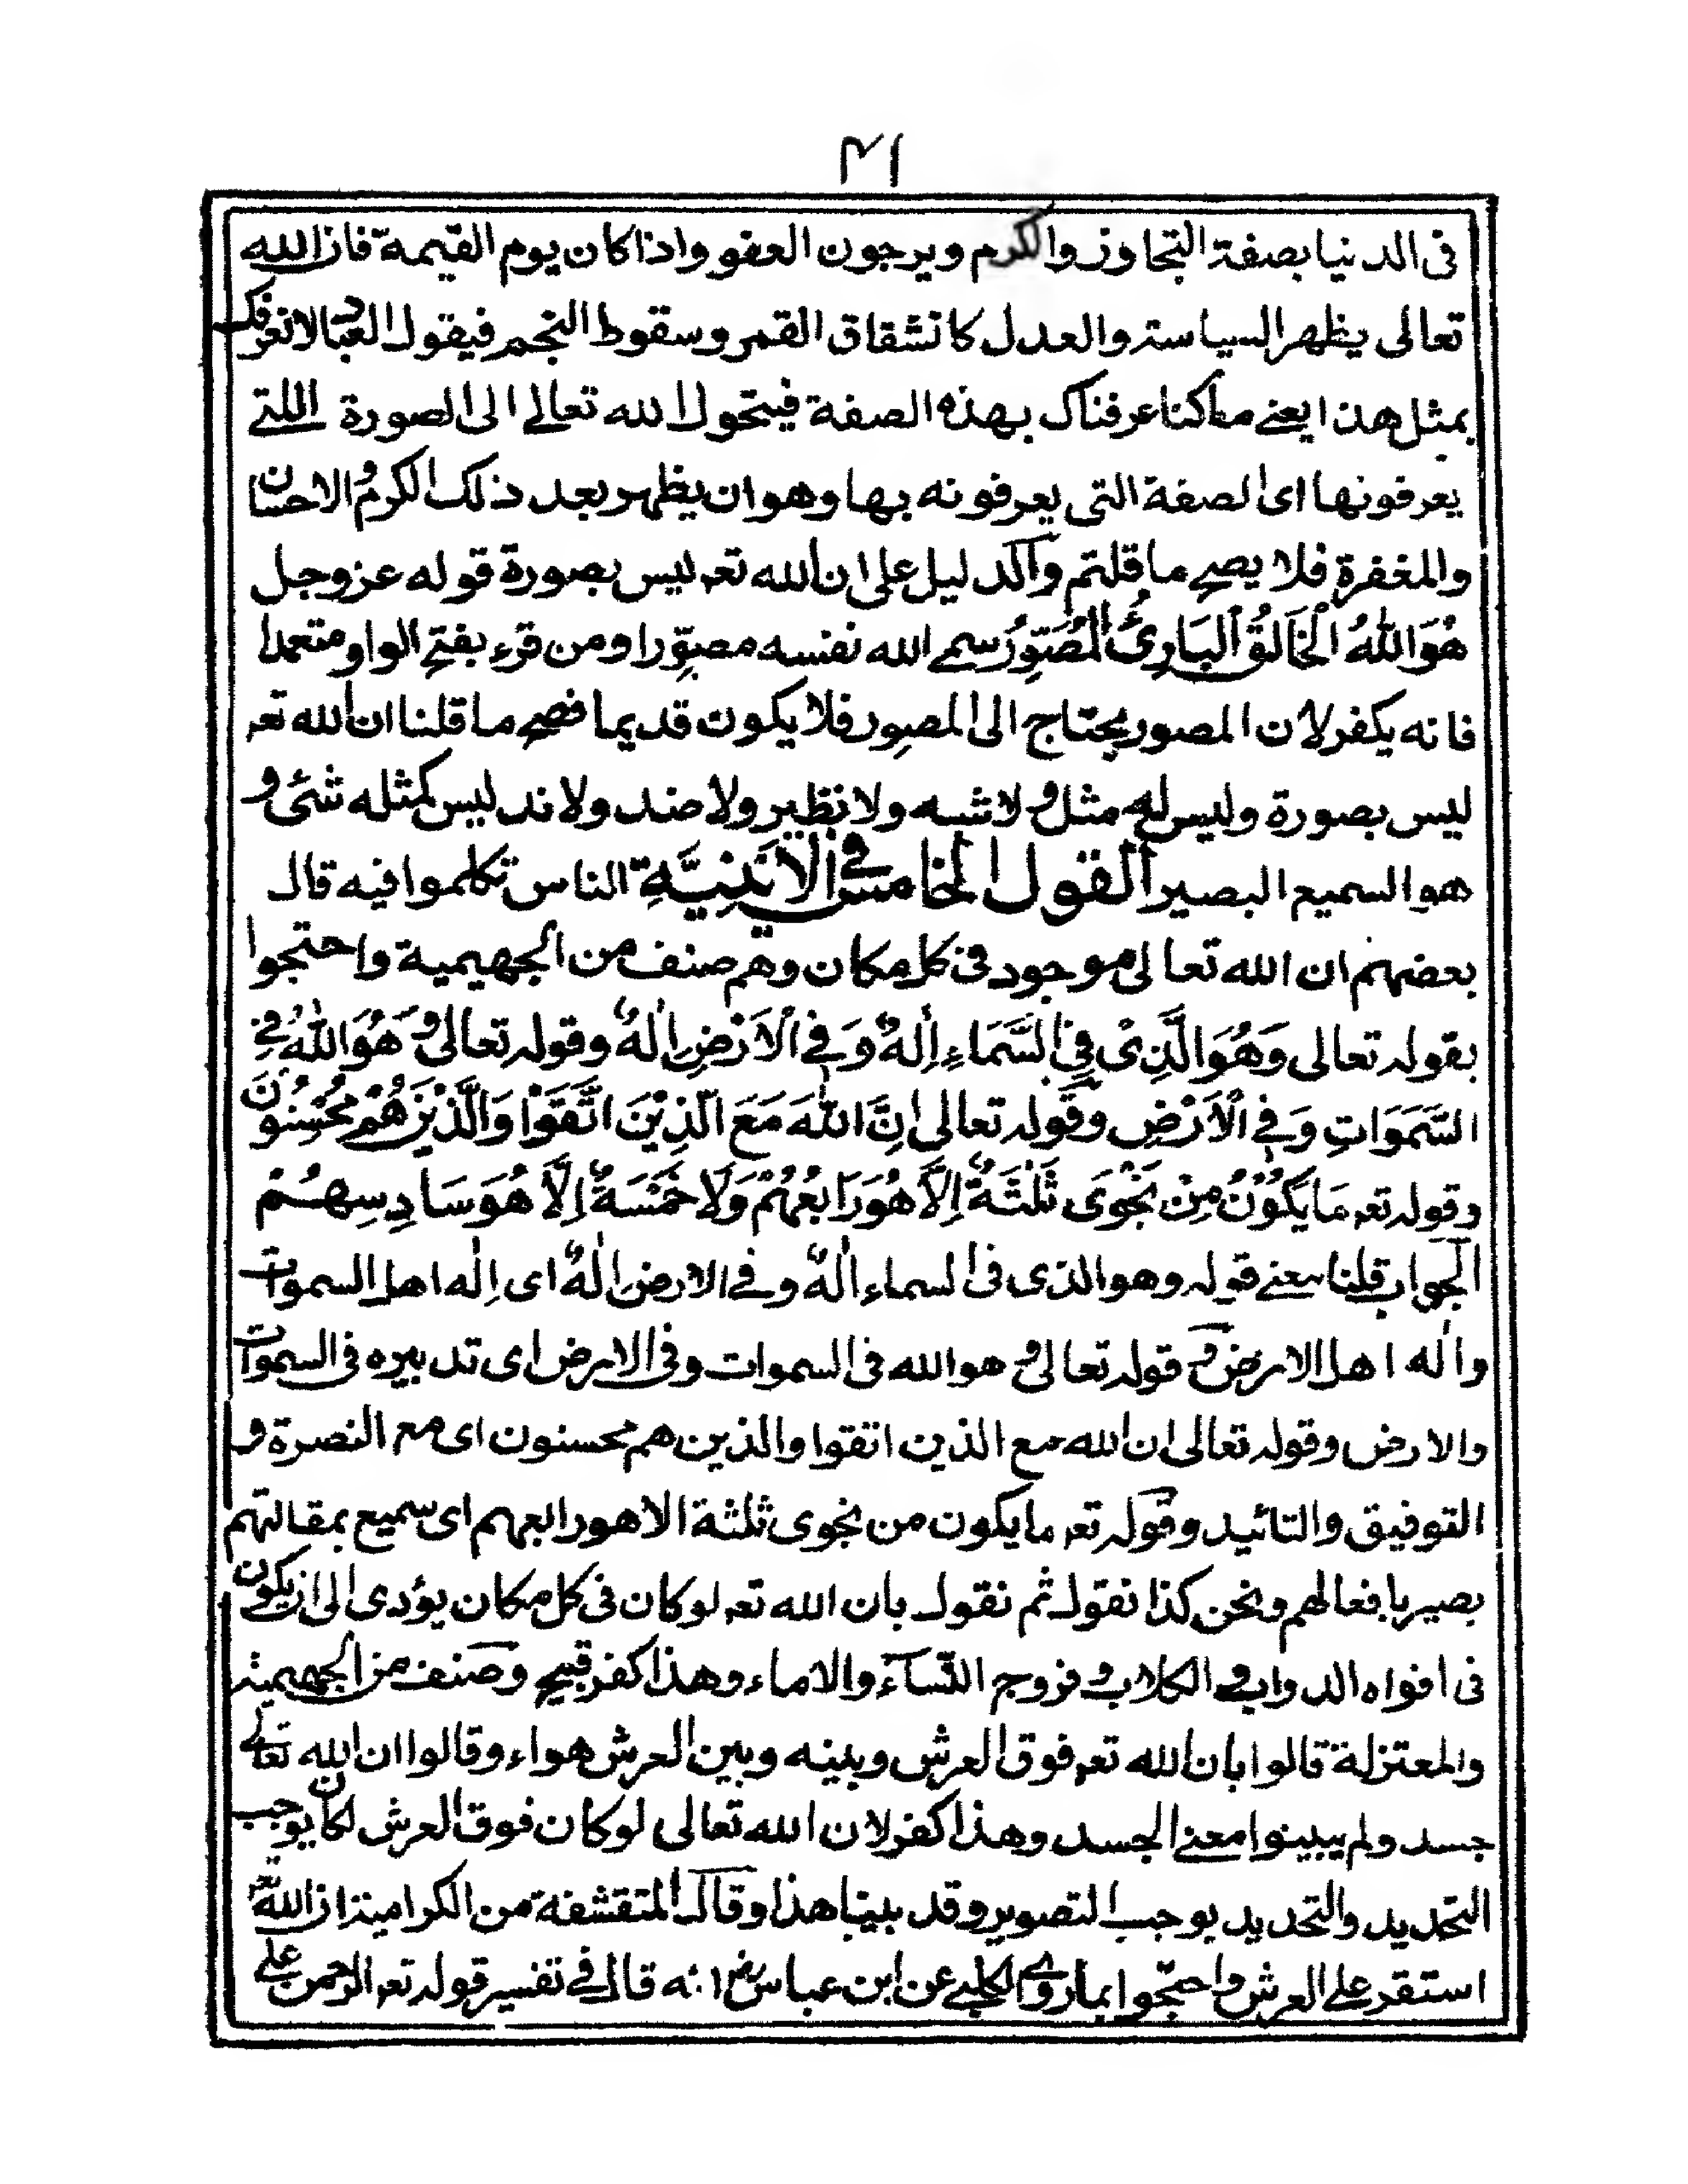 ٤١
فى الدنيا بصفة التجاوز والكرم ويرجون العفو واذا كان يوم القيمة فان الله
تعالى يظهر السياسة والعدل كانشقاق القمر وسقوط النجم فيقول العباد لا نعرفك
بمثل هذا يعنے ماكنا عرفناك بهذه الصفة فيتحول الله تعالے الى الصورة اللتے
يعرفونها اى الصفة التى يعرفونه بها وهو ان يظهر بعد ذلك الكرم والاحسان
والمغفرة فلا يصح ما قلتم والدليل على ان الله تعہ ليس بصورة قوله عز وجل
هُوَ اللهُ الْخَالِقُ الْبَارِئُ الْمُصَوِّرُ سمے الله نفسه مصوِّرا ومن قرء بفتح الواو متعمدا
فانه يكفر لان المصور يحتاج الى المصوِر فلا يكون قديما فصح ما قلنا ان الله تعہ
ليس بصورة وليس له مثل ولا شبه ولا نظير ولا ضد ولا ند ليس كمثله شئ و
هو السميع البصير القول الخامس فے الْاَيْنِيَّةِ الناس تكلموا فيه قال
بعضهم ان الله تعالى موجود فى كل مكان وهم صنف من الجهيمية واحتجوا
بقوله تعالى وَهُوَ الَّذِىْ فِى السَّمَاءِ اِلٰهٌ وَفِے الْاَرْضِ اِلٰهٌ وقوله تعالى وَهُوَ اللهُ فِے
السَّمَوَاتِ وَفِے الْاَرْضِ وقوله تعالى اِنَّ اللهَ مَعَ الَّذِيْنَ اتَّقَوْا وَالَّذِيْنَ هُمْ مُحْسِنُوْنَ
وقوله تعہ مَا يَكُوْنُ مِنْ نَجْوَى ثَلٰثَةٌ اِلَّا هُوَ رَابِعُهُمْ وَلَا خَمْسَةٌ اِلَّا هُوَ سَادِسِهُمْ
الجواب قلنا معنے قوله وهو الذى فى السماء الهٌ وفے الارض الهٌ اى اِلٰه اهل السموات
واله اهل الارض وقوله تعالى وهو الله فى السموات وفى الارض اى تدبيره فى السموات
والارض وقوله تعالى ان الله مع الذين اتقوا والذين هم محسنون اى مع النصرة و
التوفيق والتائيد وقوله تعہ ما يكون من نجوى ثلثة الا هو رابعهم اى سميع بمقالتهم
بصير بافعالهم ونحن كذا نقول ثم نقول بان الله تعہ لو كان فى كل مكان يؤدى الى ان يكون
فى افواه الدواب والكلاب وفروج النساء والاماء وهذا كفر قبيح وصنف من الجهيمية
والمعتزلة قالوا بان الله تعہ فوق العرش وبينه وبين العرش هواء وقالوا ان الله تعالے
جسد ولم يبينوا معنے الجسد وهذا كفر لان الله تعالى لو كان فوق العرش لكان يوجب
التحديد والتحديد يوجب التصوير وقد بينا هذا وقال المتقشفة من الكرامية ان الله
استقر على العرش واحتجّوا بما روى الكلبے عن ابن عباس رض انه قال فے تفسير قوله تعہ الرحمن علے